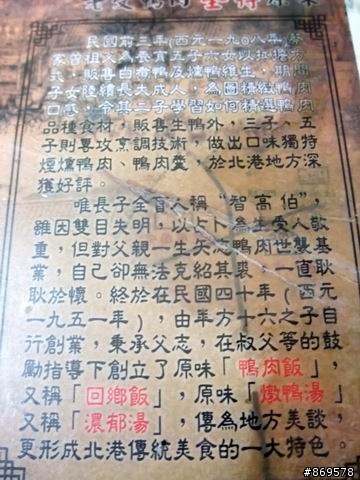 老受鴨肉
民國前三年(西元一九○八年)蔡
家曾祖父為養育五子六女以拉擔方
式,販售白煮鴨及燻鴨維生,期間
子女陸續長大成人,為圖精緻鴨肉
口感,令其二子學習如何精選鴨肉
品種食材,販售生鴨外,三子、五
子則專攻烹調技術,做出口味獨特
煙燻鴨肉、鴨肉羹,於北港地方深
獲好評。
唯長子全盲人稱"智高伯",
雖因雙目失明,以占卜為生受人敬
重,但對父親一生矢志鴨肉世襲基
業,自己卻無法克紹其裘,一直耿
耿於懷。終於在民國四十年(西元
一九五一年),由年方十六之子自
行創業,秉承父志,在叔父等的鼓
勵指導下創立了原味「鴨肉飯」
又稱「回鄉飯」,原味「燉鴨湯」
又稱「濃郁湯」,傳為地方美談,
更形成北港傳統美食的一大特色。
#869578